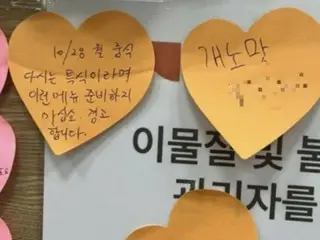 10/28 월 중식
다시는 특식이라며
이런메뉴 준비하지
마십쇼. 경고
합니다.
개노맛
이물질 및 불
관리자를